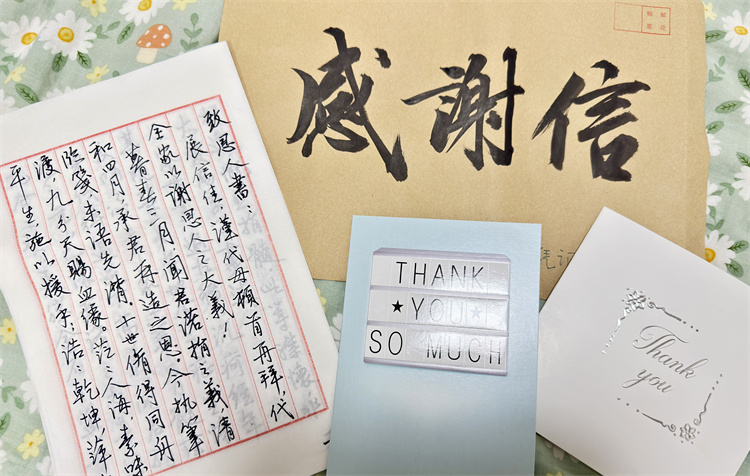 感謝信
致恩人書：
展信佳，谨代母頓首再拜，代
全家以謝恩人之大義！
暮春三月，聞君諾捐之義，清
和四月，承君再造之恩。今執筆
臨箋，未语先潸。十世脩得同舟
渡，九分天賜血緣。茫〻人海，素昧
平生，施以援手；浩〻乾坤，萍
THANK
★YOU★
SO MUCH
Thank
you